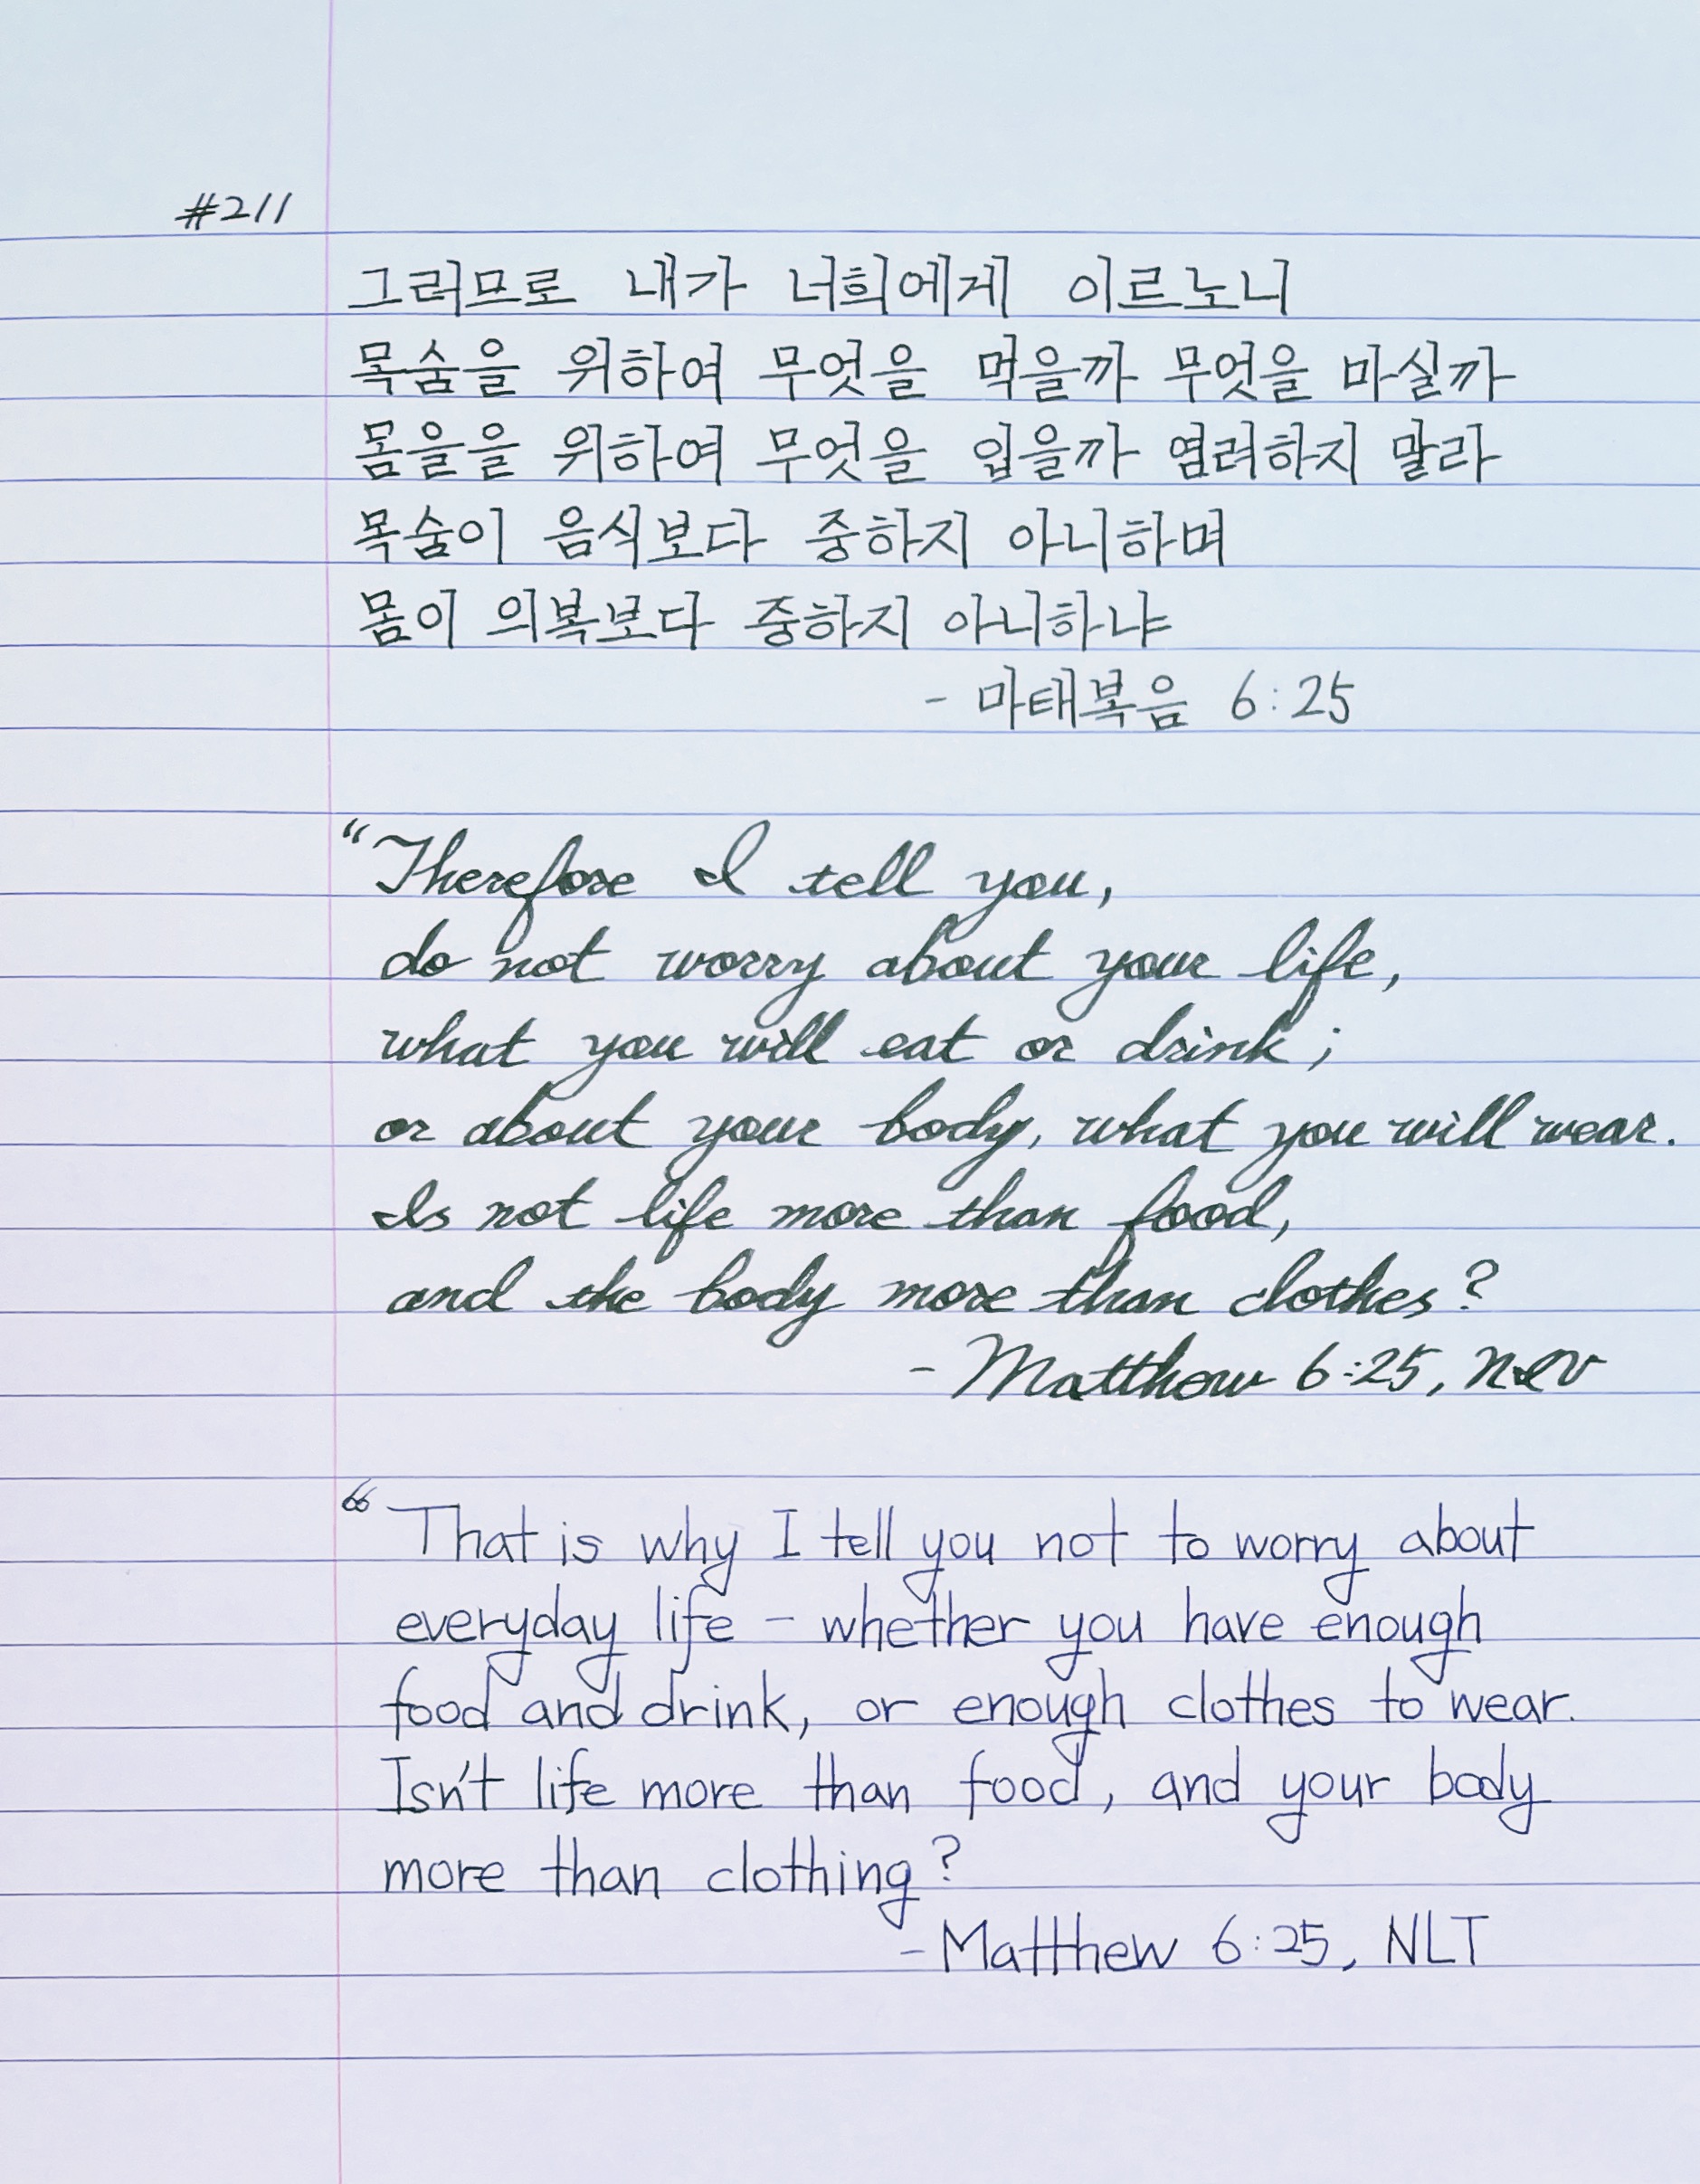 #211
그러므로 내가 너희에게 이르노니
목숨을 위하여 무엇을 먹을까 무엇을 마실까
몸을을 위하여 무엇을 입을까 염려하지 말라
목숨이 음식보다 중하지 아니하며
몸이 의복보다 중하지 아니하냐
- 마태복음 6:25
“Therefore I tell you,
do not worry about your life,
what you will eat or drink;
or about your body, what you will wear.
Is not life more than food,
and the body more than clothes?
- Matthew 6:25, NIV
“That is why I tell you not to worry about
everyday life - whether you have enough
food and drink, or enough clothes to wear.
Isn't life more than food, and your body
more than clothing?
- Matthew 6:25, NLT